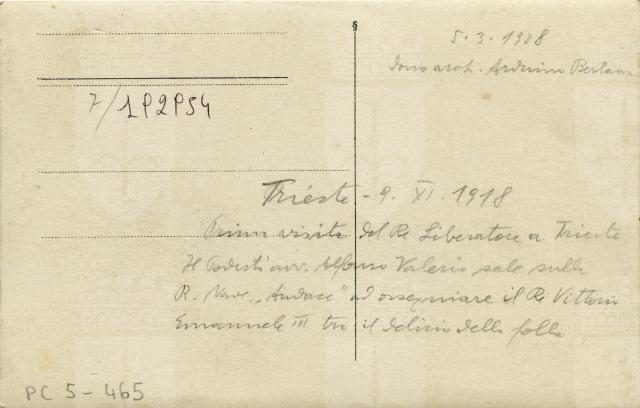 §
5. 3. 1928
dono arch. Arduino Berlam
7/1P2P54
Trieste - 9. XI. 1918
Prima visita del Re Liberatore a Trieste
Il Podestà avv. Alfonso Valerio sale sulla
R. Nave "Audace" ad ossequiare il Re Vittorio
Emanuele III tra il delirio della folla
PC 5-465